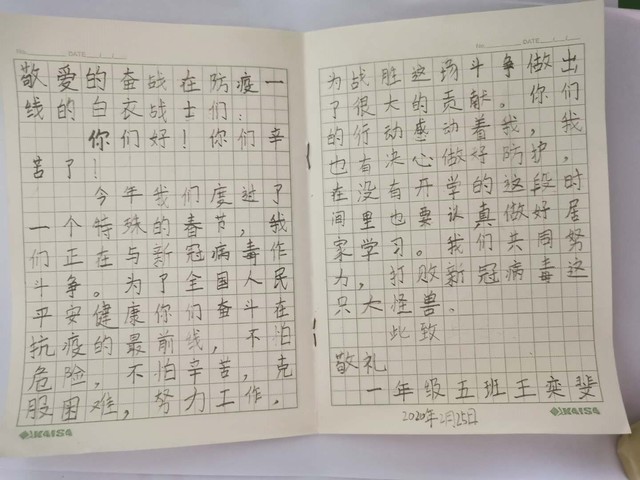 No. DATE / /
敬爱的奋战在防疫一
线的白衣战士们：
你们好！你们辛
苦了！
今年我们度过了
一个特殊的春节，我
们正在与新冠病毒作
斗争。为了全国人民
平安健康你们奋斗在
抗疫的最前线，不怕
危险，不怕辛苦，克
服困难，努力工作，
KAISA
No. DATE / /
为战胜这场斗争做出
了很大的贡献。你们
的行动感动着我，我
也有决心做好防护，
在没有开学的这段时
间里也要认真做好居
家学习。我们共同努
力，打败新冠病毒这
只大怪兽。
此致
敬礼
一年级五班王奕斐
2020年2月25日
KAISA